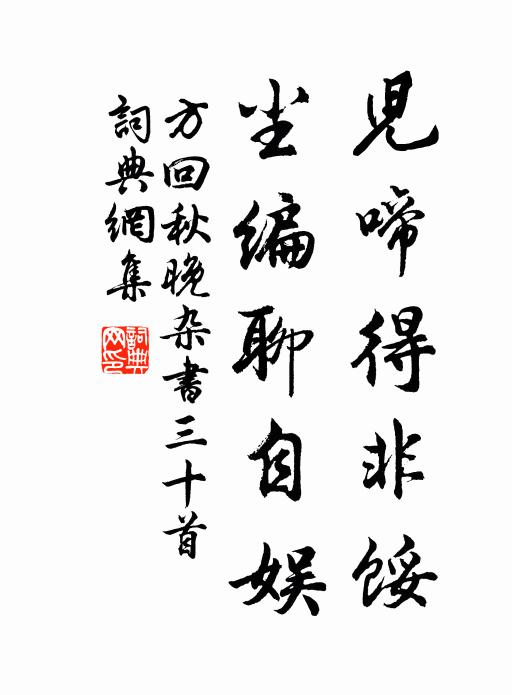 兒啼得非餒
尘編聊自娛
方回秋晚杂書三十首
詞典網集
詞典网印